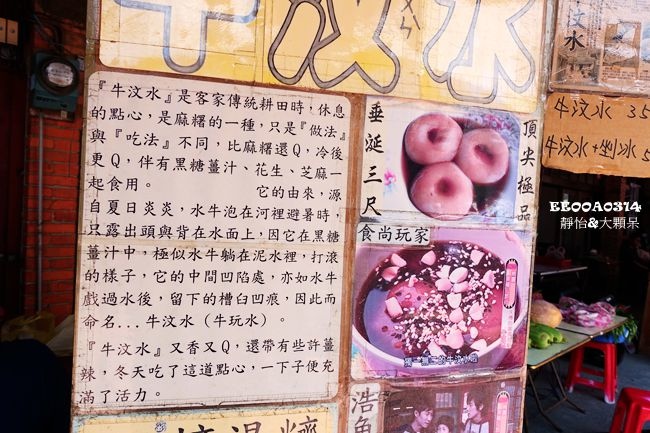 牛汶水
ㄨㄣˋ
『牛汶水』是客家傳統耕田時，休息
的點心，是麻糬的一種，只是『做法』
與『吃法』不同，比麻糬還Q，冷後
更Q，伴有黑糖薑汁、花生、芝麻一
起食用。 它的由來，源
自夏日炎炎，水牛泡在河裡避暑時，
只露出頭與背在水面上，因它在黑糖
薑汁中，極似水牛躺在泥水裡，打滾
的樣子，它的中間凹陷處，亦如水牛
戲過水後，留下的槽臼凹痕，因此而
命名...牛汶水（牛玩水）。
『牛汶水』又香又Q，還帶有些許薑
辣，冬天吃了這道點心，一下子便充
滿了活力。
垂涎三尺
頂尖極品
食尚玩家
獨一無二的牛汶水
汶水
牛汶水 35
牛汶水+剉冰 5
EE00A0314
靜怡&大顆呆